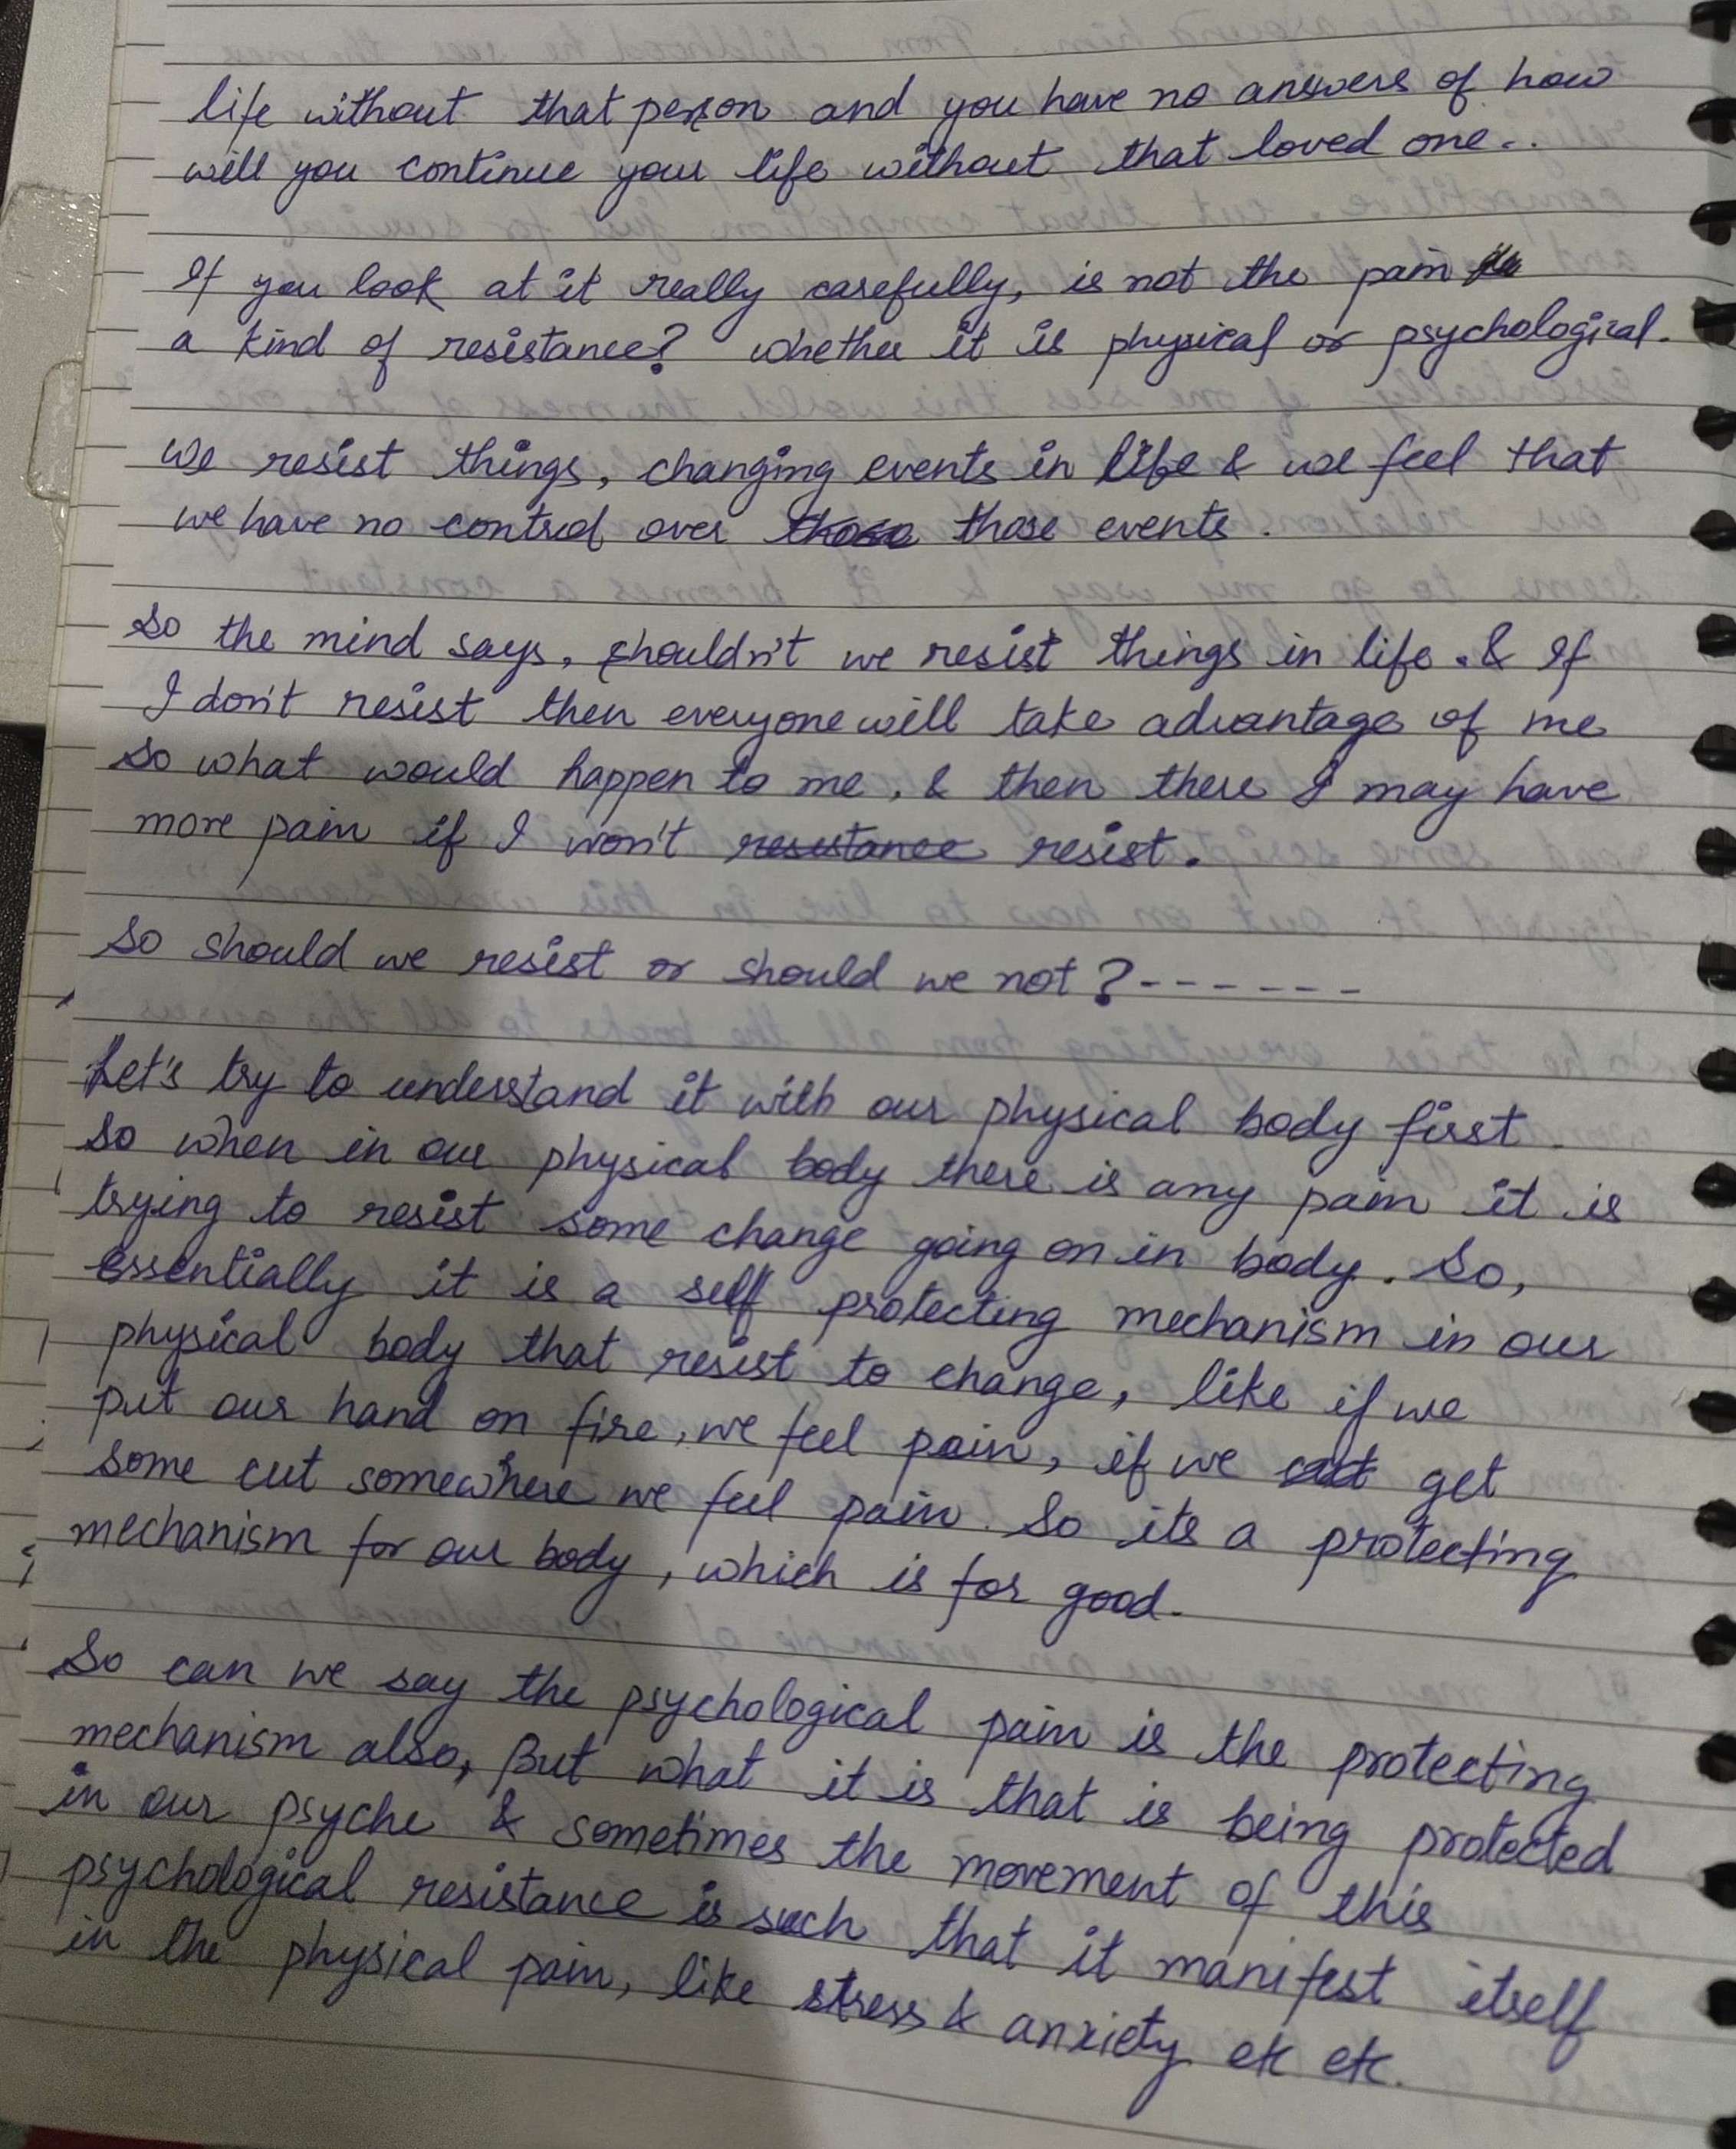 life without that person and you have no answers of how
will you continue your life without that loved one..
If you look at it really carefully, is not the pain
a kind of resistance? whether it is physical or psychological.
we resist things, changing events in life & we feel that
we have no control over those those events.
So the mind says, shouldn't we resist things in life. & If
I don't resist then everyone will take advantage of me
so what would happen to me, & then there I may have
more pain if I won't resistance resist.
So should we resist or should we not?------
Let's try to understand it with our physical body first.
So when in our physical body there is any pain it is
trying to resist some change going on in body. So,
essentially it is a self protecting mechanism in our
physical body that resist to change, like if we
put our hand on fire, we feel pain, if we get
some cut somewhere we feel pain. So its a protecting
mechanism for our body, which is for good.
So can we say the psychological pain is the protecting
mechanism also, But what it is that is being protected
in our psyche & sometimes the movement of this
psychological resistance is such that it manifest itself
in the physical pain, like stress & anxiety etc etc.